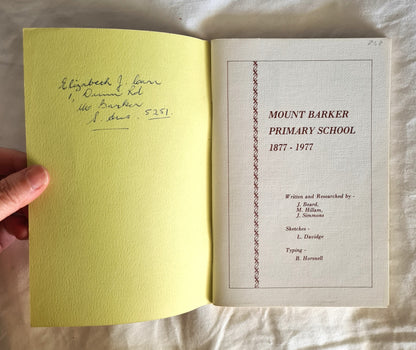 Elizabeth J. Carr
1, Dunn Rd
Mt Barker
S. Aus. 5251.
MOUNT BARKER
PRIMARY SCHOOL
1877 - 1977
Written and Researched by -
J. Beard,
M. Hillam,
J. Simmons
Sketches -
L. Davidge
Typing -
B. Horsnell